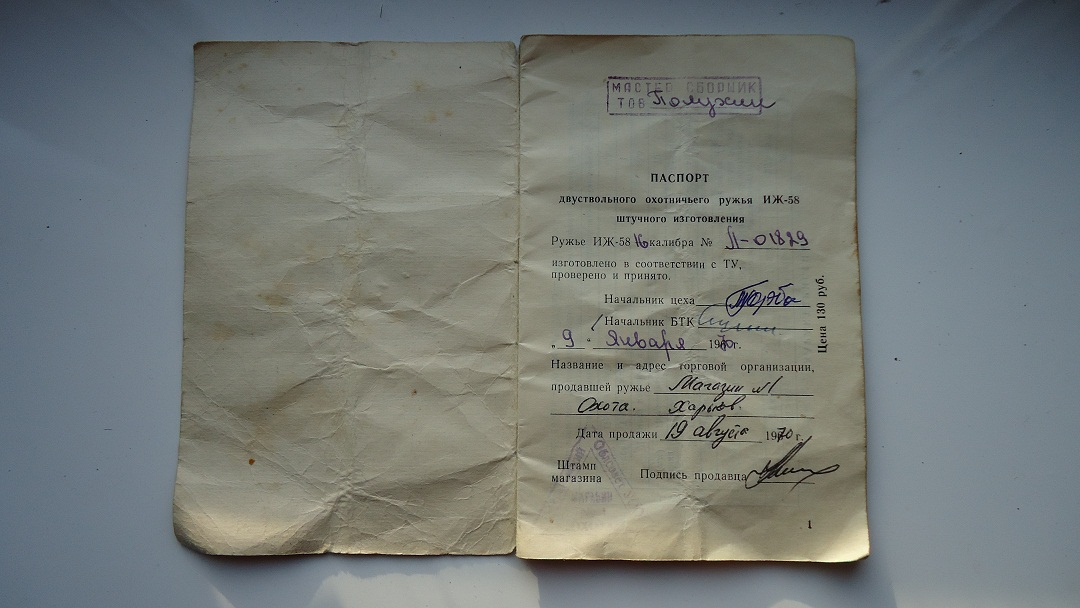 МАСТЕР СБОРЩИК
ТОВ
ПАСПОРТ
двуствольного охотничьего ружья ИЖ-58
штучного изготовления
Ружье ИЖ-58 16 калибра № П-01829
изготовлено в соответствии с ТУ,
проверено и принято.
Начальник цеха
Начальник БТК
„ 9 “ Января 1970 г.
Название и адрес торговой организации,
продавшей ружье Магазин №1
Охота. Харьков.
Дата продажи 19 августа 1970 г.
Штамп
магазина
Подпись продавца
Цена 130 руб.
1